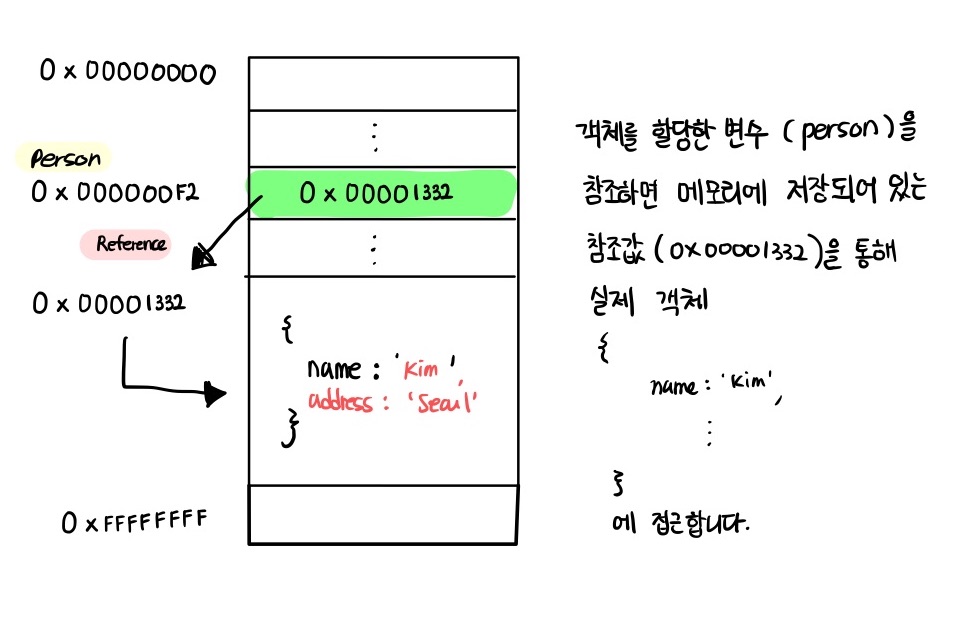 0x00000000
⋮
Person
0x000000F2
0x00001332
Reference
⋮
0x00001332
{
name : 'Kim',
address : 'Seoul'
}
0xFFFFFFFF
객체를 할당한 변수 (person)을
참조하면 메모리에 저장되어 있는
참조값 (0x00001332)을 통해
실제 객체
{
name : 'Kim',
⋮
}
에 접근합니다.